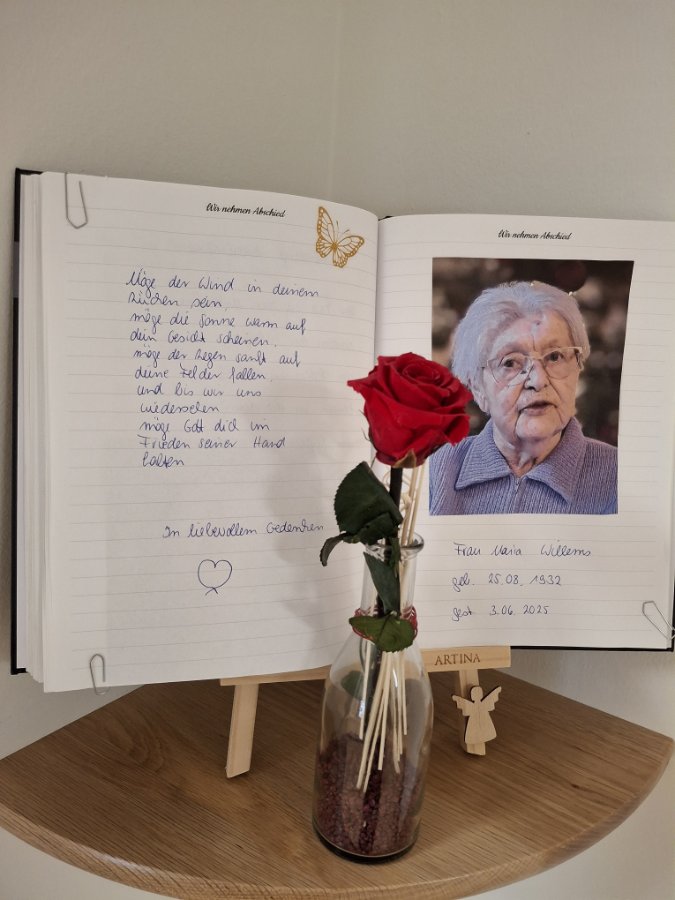 Wir nehmen Abschied
Möge der Wind in deinem
Rücken sein,
möge die Sonne warm auf
dein Gesicht scheinen,
möge der Regen sanft auf
deine Felder fallen,
und bis wir uns
wiedersehen
möge Gott dich im
Frieden seiner Hand
halten
In liebevollem Gedenken
Wir nehmen Abschied
Frau Maria Willems
geb. 25.08.1932
gest. 3.06.2025
ARTINA